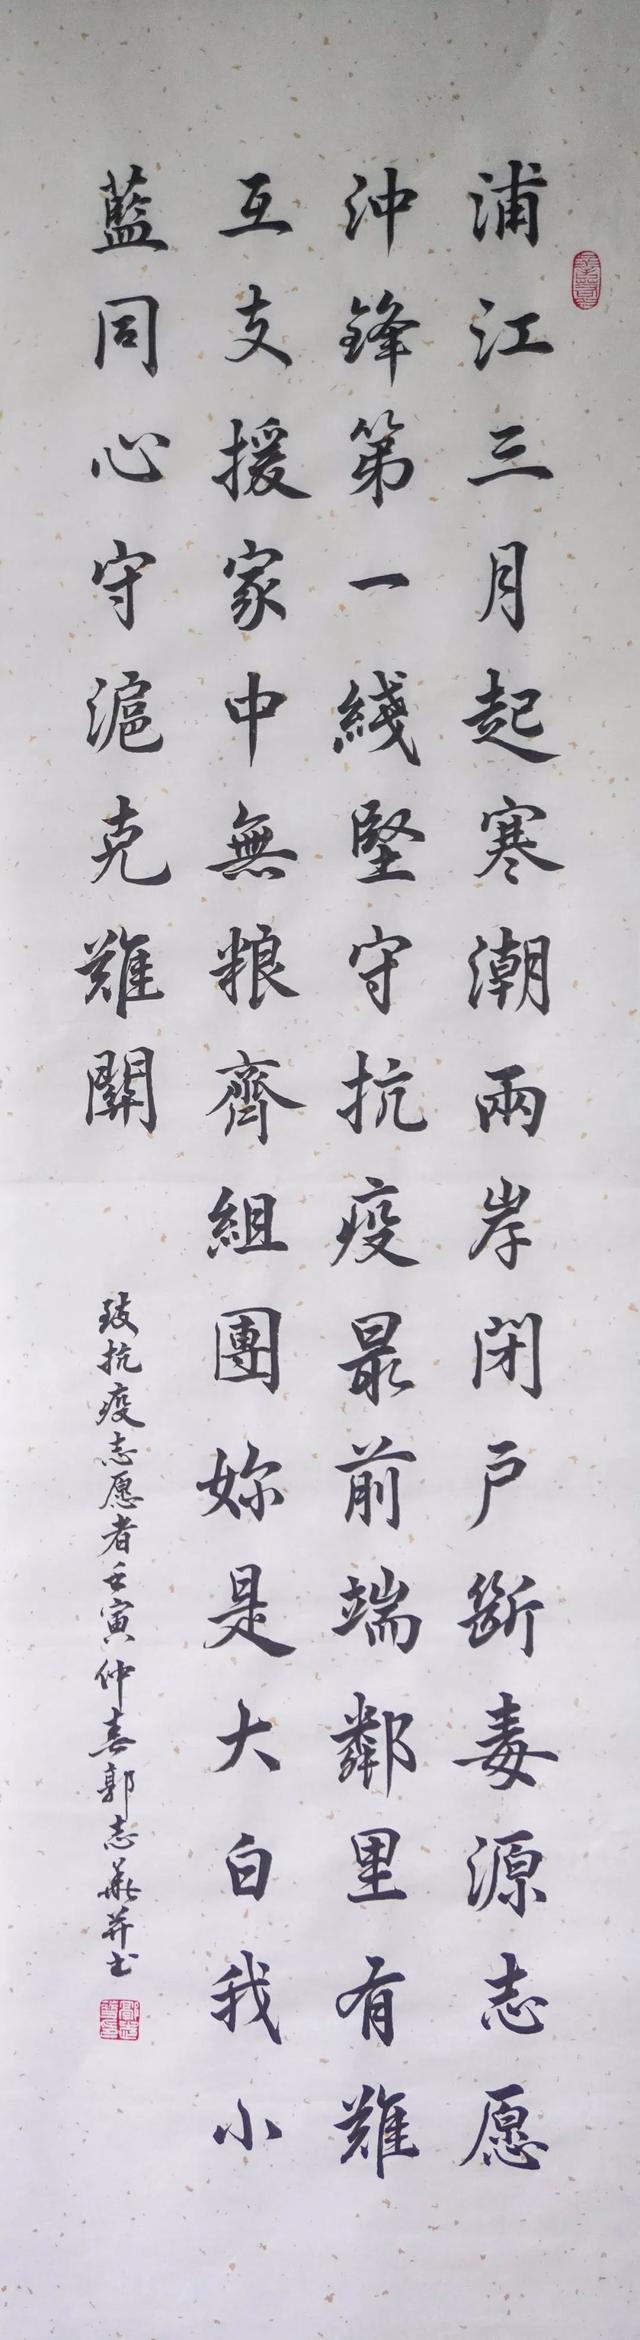 浦江三月起寒潮兩岸閉戸斷毒源志愿
沖鋒第一綫堅守抗疫最前端鄰里有難
互支援家中無粮齊組團妳是大白我小
藍同心守滬克難關
致抗疫志愿者壬寅仲春郭志華并书